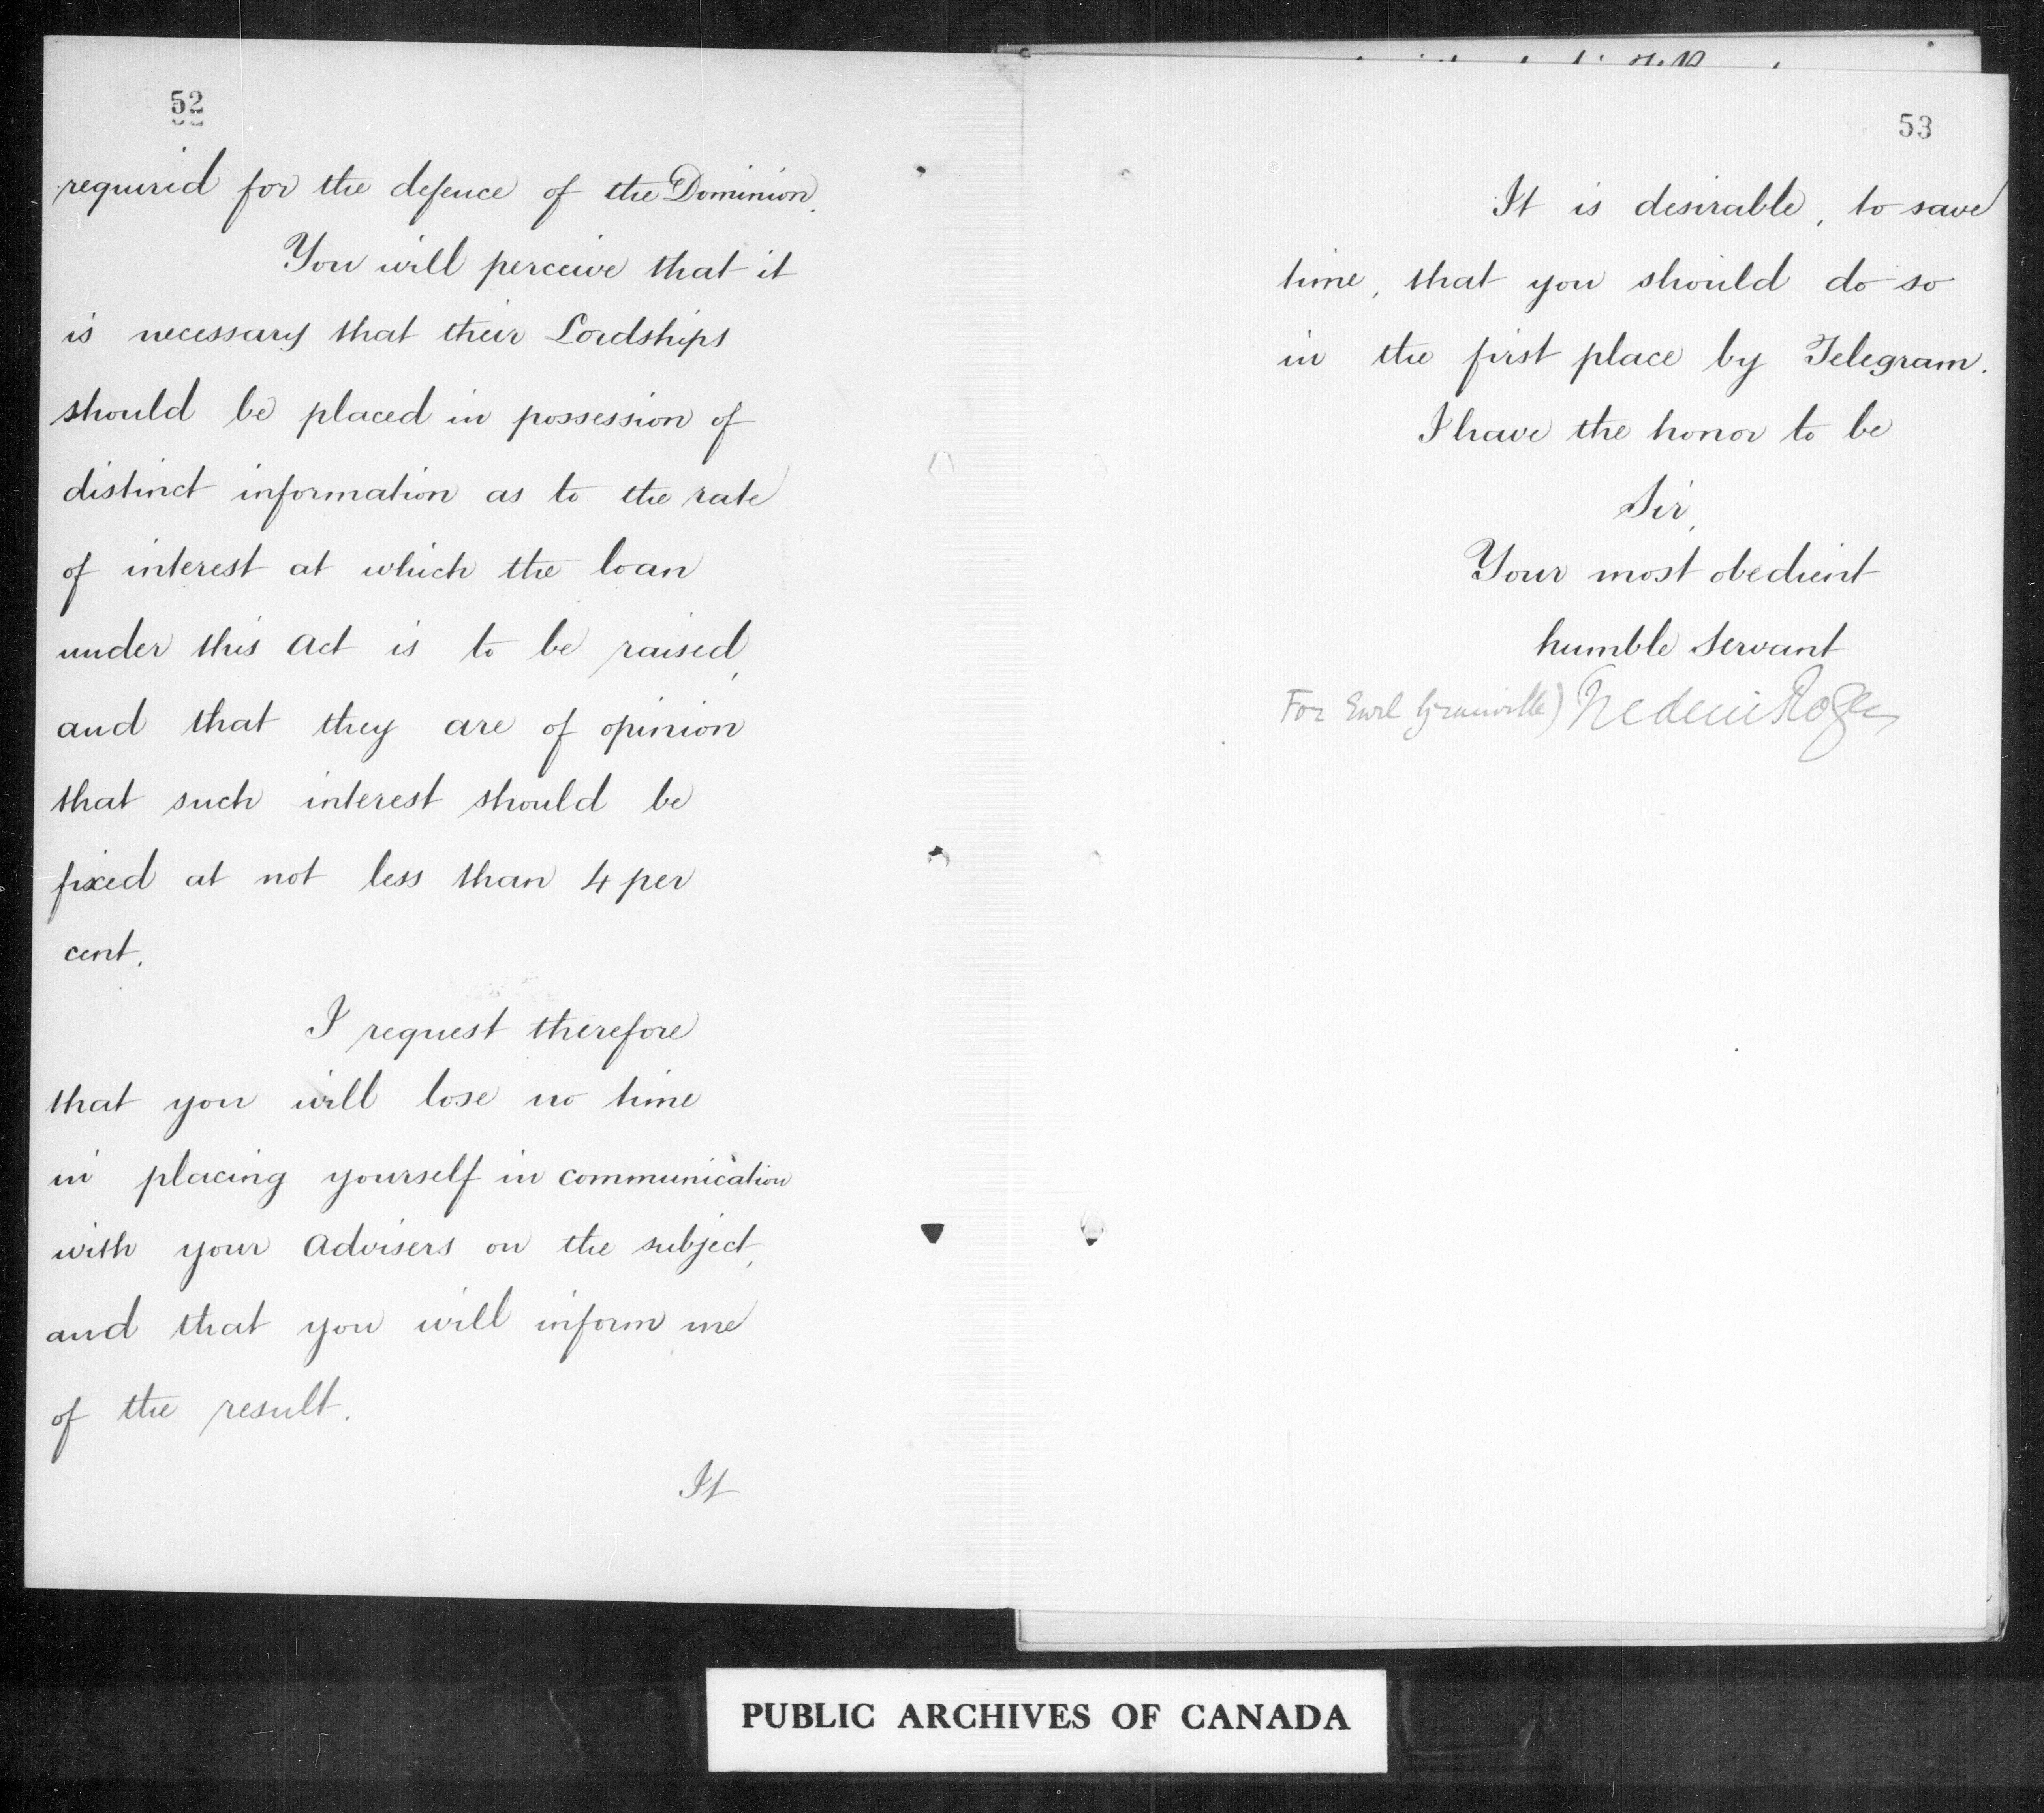 52
required for the defence of the Dominion.
You will perceive that it
is necessary that their Lordships
should be placed in possession of
distinct information as to the rate
of interest at which the loan
under this Act is to be raised,
and that they are of opinion
that such interest should be
fixed at not less than 4 per
cent.
I request therefore
that you will lose no time
in placing yourself in communication
with your Advisers on the subject,
and that you will inform me
of the result.
It
53
It is desirable, to save
time, that you should do so
in the first place by Telegram.
I have the honor to be
Sir,
Your most obedient
humble Servant
For Earl Granville) Frederic Rogers
PUBLIC ARCHIVES OF CANADA